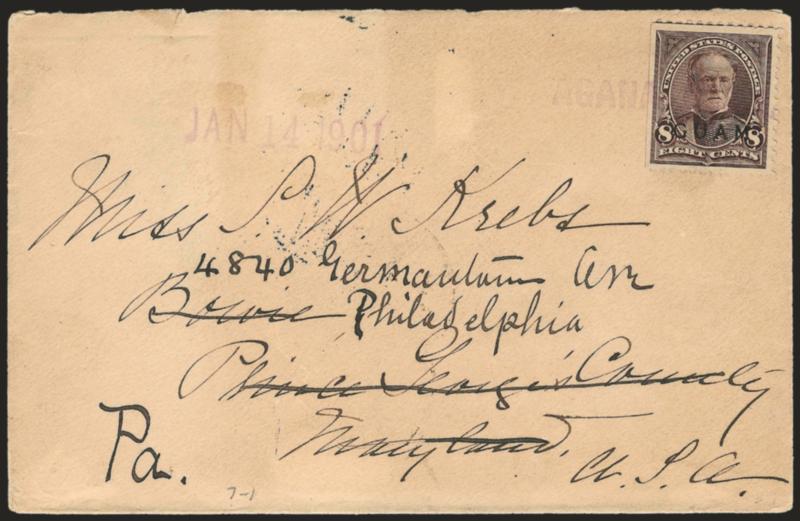 UNITED STATES POSTAGE
8 GUAM 8
EIGHT CENTS
AGANA
JAN 14 1901
Miss S. W. Krebs
4840 Germantown Ave
Bowie Philadelphia
Prince George's County
Maryland.
U.S.A.
Pa.
7-1